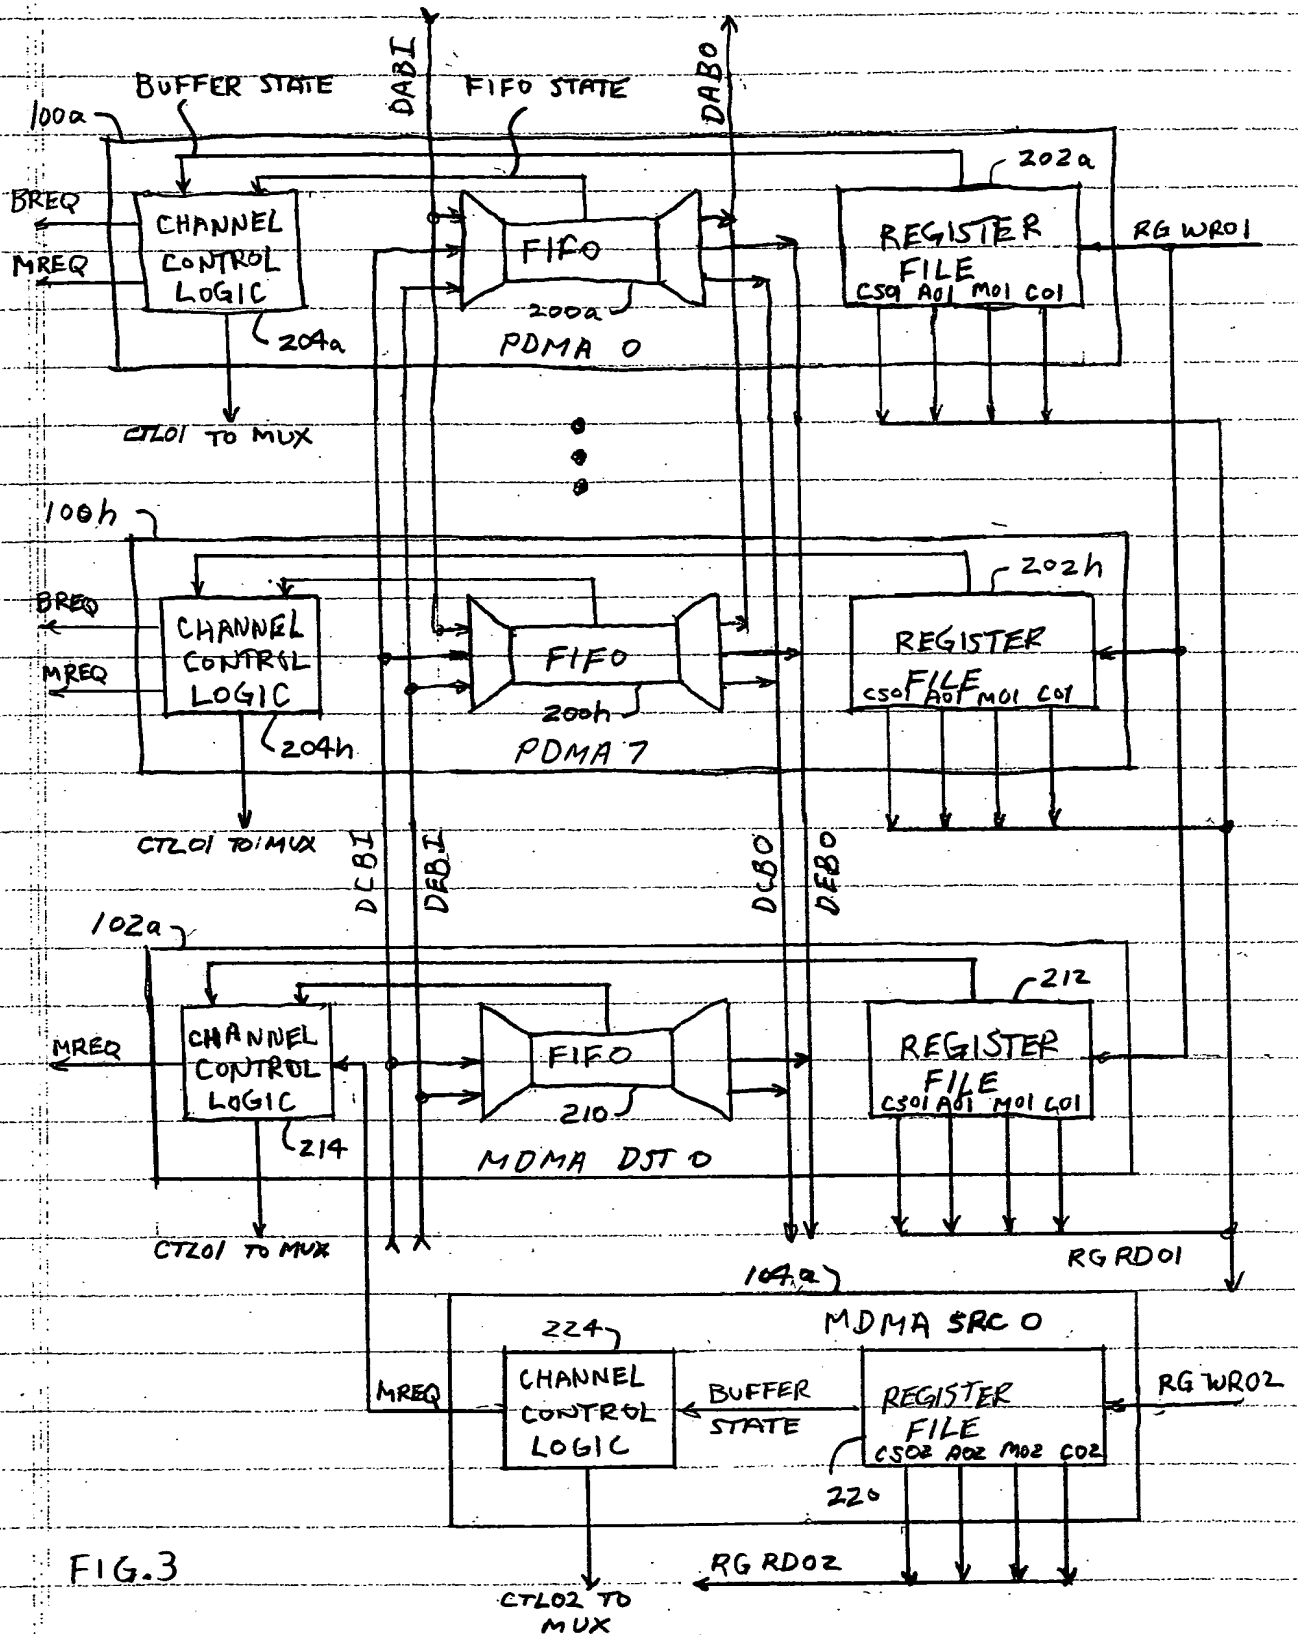 DABI
DABO
BUFFER STATE
FIFO STATE
100a
202a
BREQ
MREQ
CHANNEL
CONTROL
LOGIC
FIFO
REGISTER
FILE
CS01 A01 M01 C01
RG WR01
200a
204a
PDMA 0
CTL01 TO MUX
100h
202h
BREQ
MREQ
CHANNEL
CONTROL
LOGIC
FIFO
REGISTER
FILE
CS01 A01 M01 C01
200h
204h
PDMA 7
CTL01 TO MUX
DCBI
DEBI
DCBO
DEBO
102a
212
MREQ
CHANNEL
CONTROL
LOGIC
FIFO
REGISTER
FILE
CS01 A01 M01 C01
210
214
MDMA DST 0
CTL01 TO MUX
RG RD01
104a
MDMA SRC 0
224
CHANNEL
CONTROL
LOGIC
MREQ
BUFFER
STATE
REGISTER
FILE
CS02 A02 M02 C02
RG WR02
220
RG RD02
FIG.3
CTL02 TO
MUX